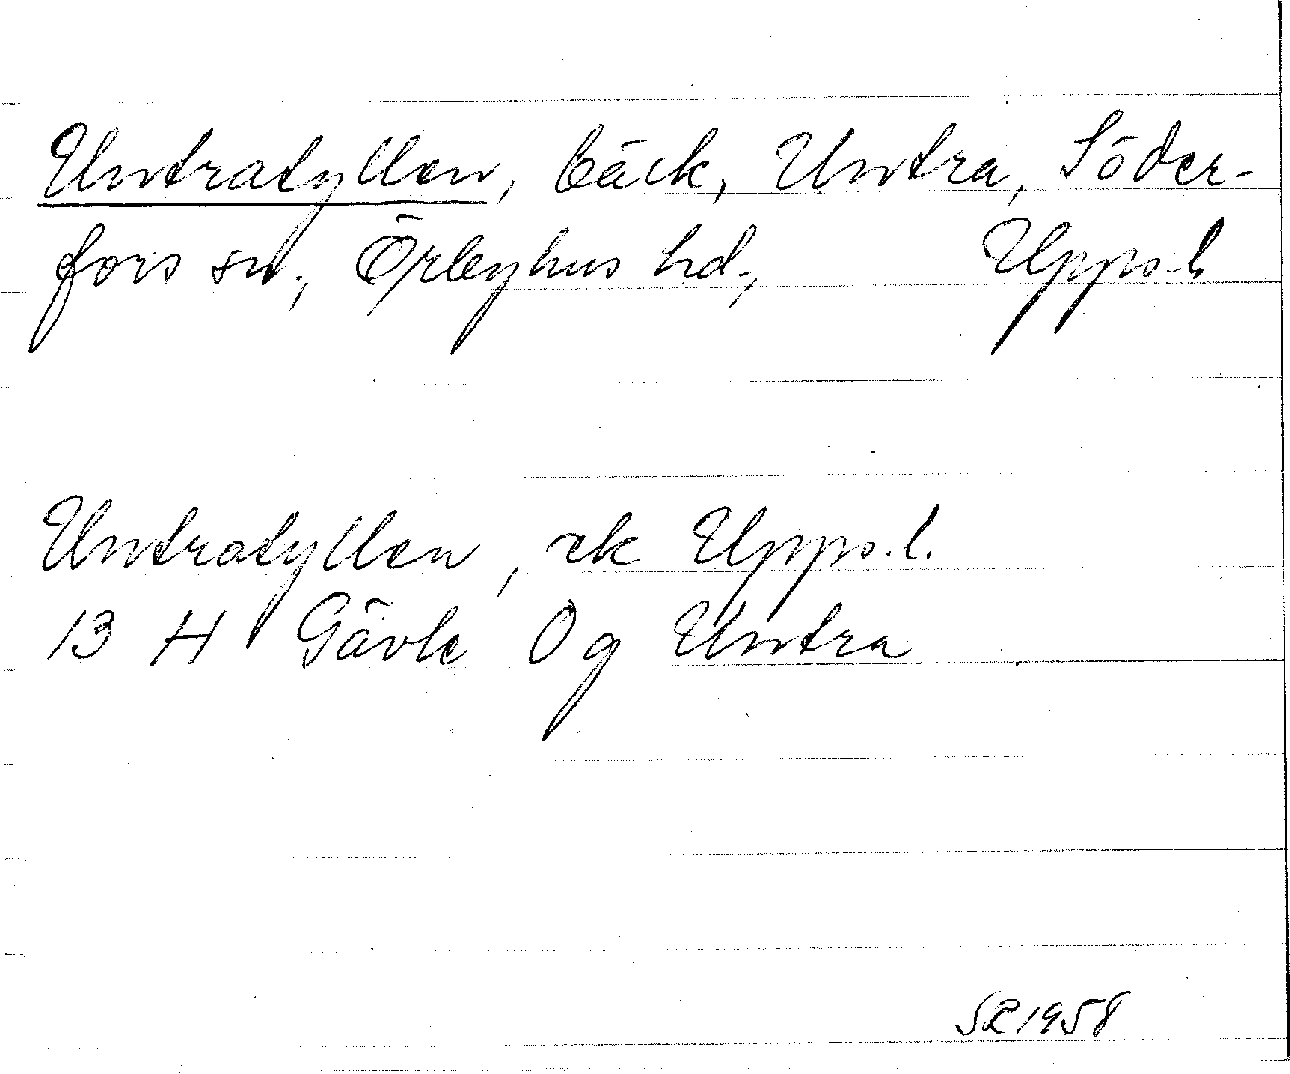 Untratyllen, bäck, Untra, Söder-
fors sn, Örbyhus hd., Upps.l.
Untratyllen, ek Upps.l.
13 H Gävle Og Untra
SR 1958